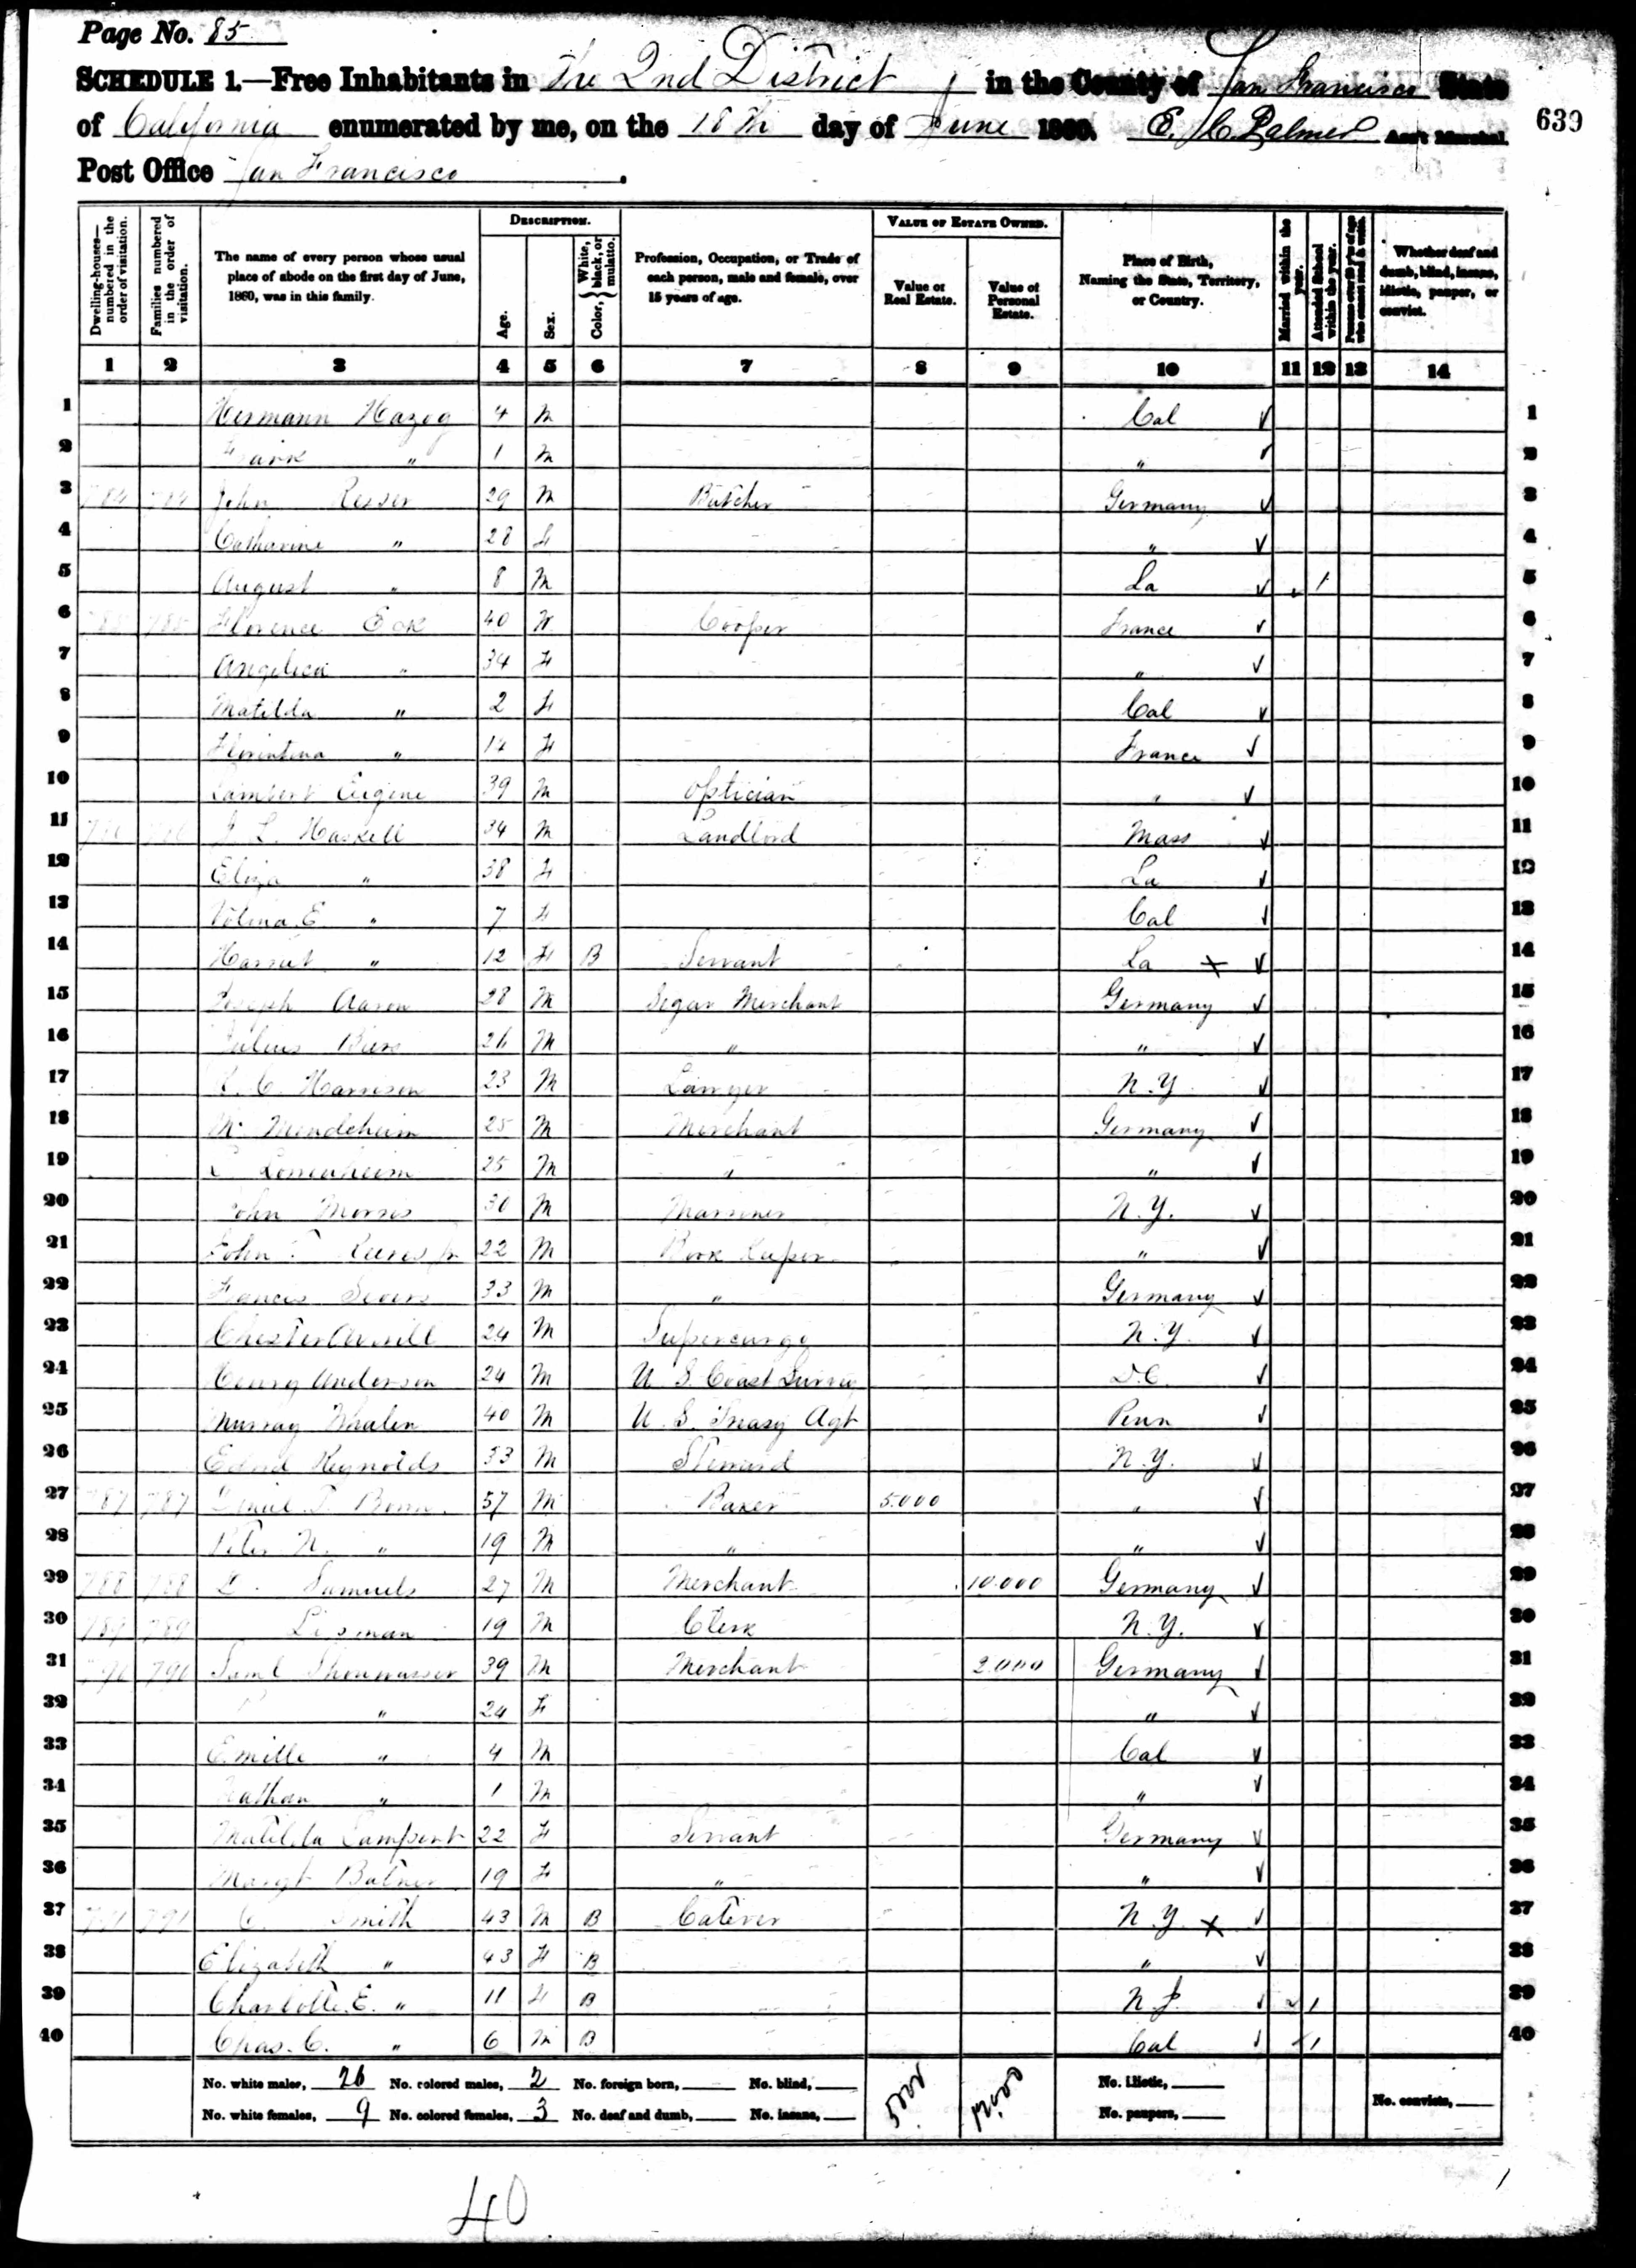 Page No. 85
SCHEDULE 1.—Free Inhabitants in The 2nd District in the County of San Francisco State
of California enumerated by me, on the 18th day of June 1860. E. C. Palmer Ass't Marshal.
639
Post Office San Francisco.
Dwelling-houses—numbered in the order of visitation.
Families numbered in the order of visitation.
The name of every person whose usual place of abode on the first day of June, 1860, was in this family.
DESCRIPTION.
Age.
Sex.
Color, { White, black, or mulatto.
Profession, Occupation, or Trade of each person, male and female, over 15 years of age.
VALUE OF ESTATE OWNED.
Value of Real Estate.
Value of Personal Estate.
Place of Birth, Naming the State, Territory, or Country.
Married within the year.
Attended School within the year.
Persons over 20 y'rs of age who cannot read & write.
Whether deaf and dumb, blind, insane, idiotic, pauper, or convict.
1 2 3 4 5 6 7 8 9 10 11 12 13 14
1 Hermann Hazog 4 M Cal 1
2 Frank " 1 M " 2
3 784 784 John 29 M Butcher Germany 3
4 Catharine " 28 F " 4
5 August " 8 M La 1 5
6 785 785 Florence Eck 40 M Cooper France 6
7 Angelica " 34 F " 7
8 Matilda " 2 F Cal 8
9 Florintina " 14 F France 9
10 Lambert Eugene 39 M Optician " 10
11 J L. Haskell 34 M Landlord Mass 11
12 Eliza " 38 F La 12
13 E " 7 F Cal 13
14 Harriet " 12 F B Servant La 14
15 Joseph Aaron 28 M Segar Merchant Germany 15
16 Julius 26 M " " 16
17 C. Harrison 23 M Lawyer N.Y. 17
18 M. Mendeheim 25 M Merchant Germany 18
19 25 M " " 19
20 John Morris 30 M Marriner N.Y. 20
21 John Reeves Jr 22 M Book Keeper " 21
22 Francis 33 M " Germany 22
23 Chester Averill 24 M Supercargo N.Y. 23
24 Henry Anderson 24 M U. S. Coast Survey D.C. 24
25 Murray Whalen 40 M U. S. Treasy Agt Penn 25
26 Edwd Reynolds 33 M Steward N.Y. 26
27 787 787 57 M Baker 5.000 " 27
28 Peter N. " 19 M " " 28
29 788 788 Samuels 27 M Merchant 10.000 Germany 29
30 789 789 Lipman 19 M Clerk N.Y. 30
31 790 790 Saml 39 M Merchant 2.000 Germany 31
32 " 24 F " 32
33 Emille " 4 M Cal 33
34 Nathan " 1 M " 34
35 Matilda Lampert 22 F Servant Germany 35
36 Margt 19 F " " 36
37 791 791 C. Smith 43 M B Caterer N.Y. 37
38 Elizabeth " 43 F B " 38
39 Charlotte E. " 11 F B N.J. 1 39
40 Chas. C. " 6 M B Cal 1 40
No. white males, 26 No. colored males, 2 No. foreign born, No. blind, No. idiotic,
No. white females, 9 No. colored females, 3 No. deaf and dumb, No. insane, 5000 12.000 No. paupers, No. convicts,
40